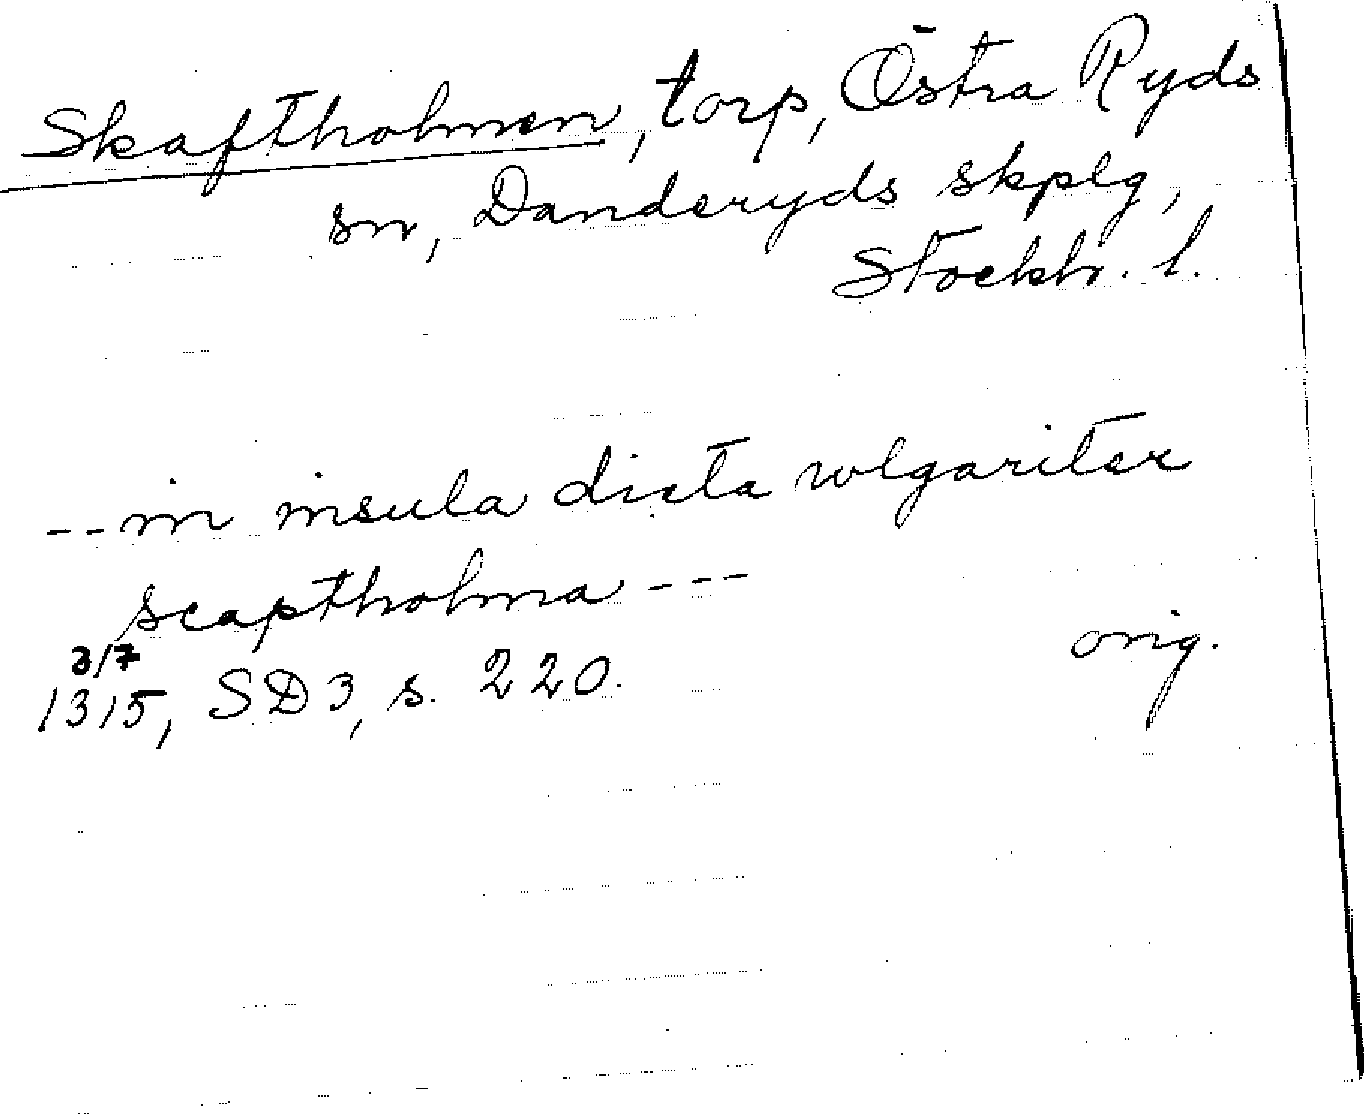 Skaftholmen, torp, Östra Ryds
sn, Danderyds skplg,
Stockh. l.
-- in insula dicta wlgariter
scaptholma ---
orig.
3/7
1315, SD3, s. 220.